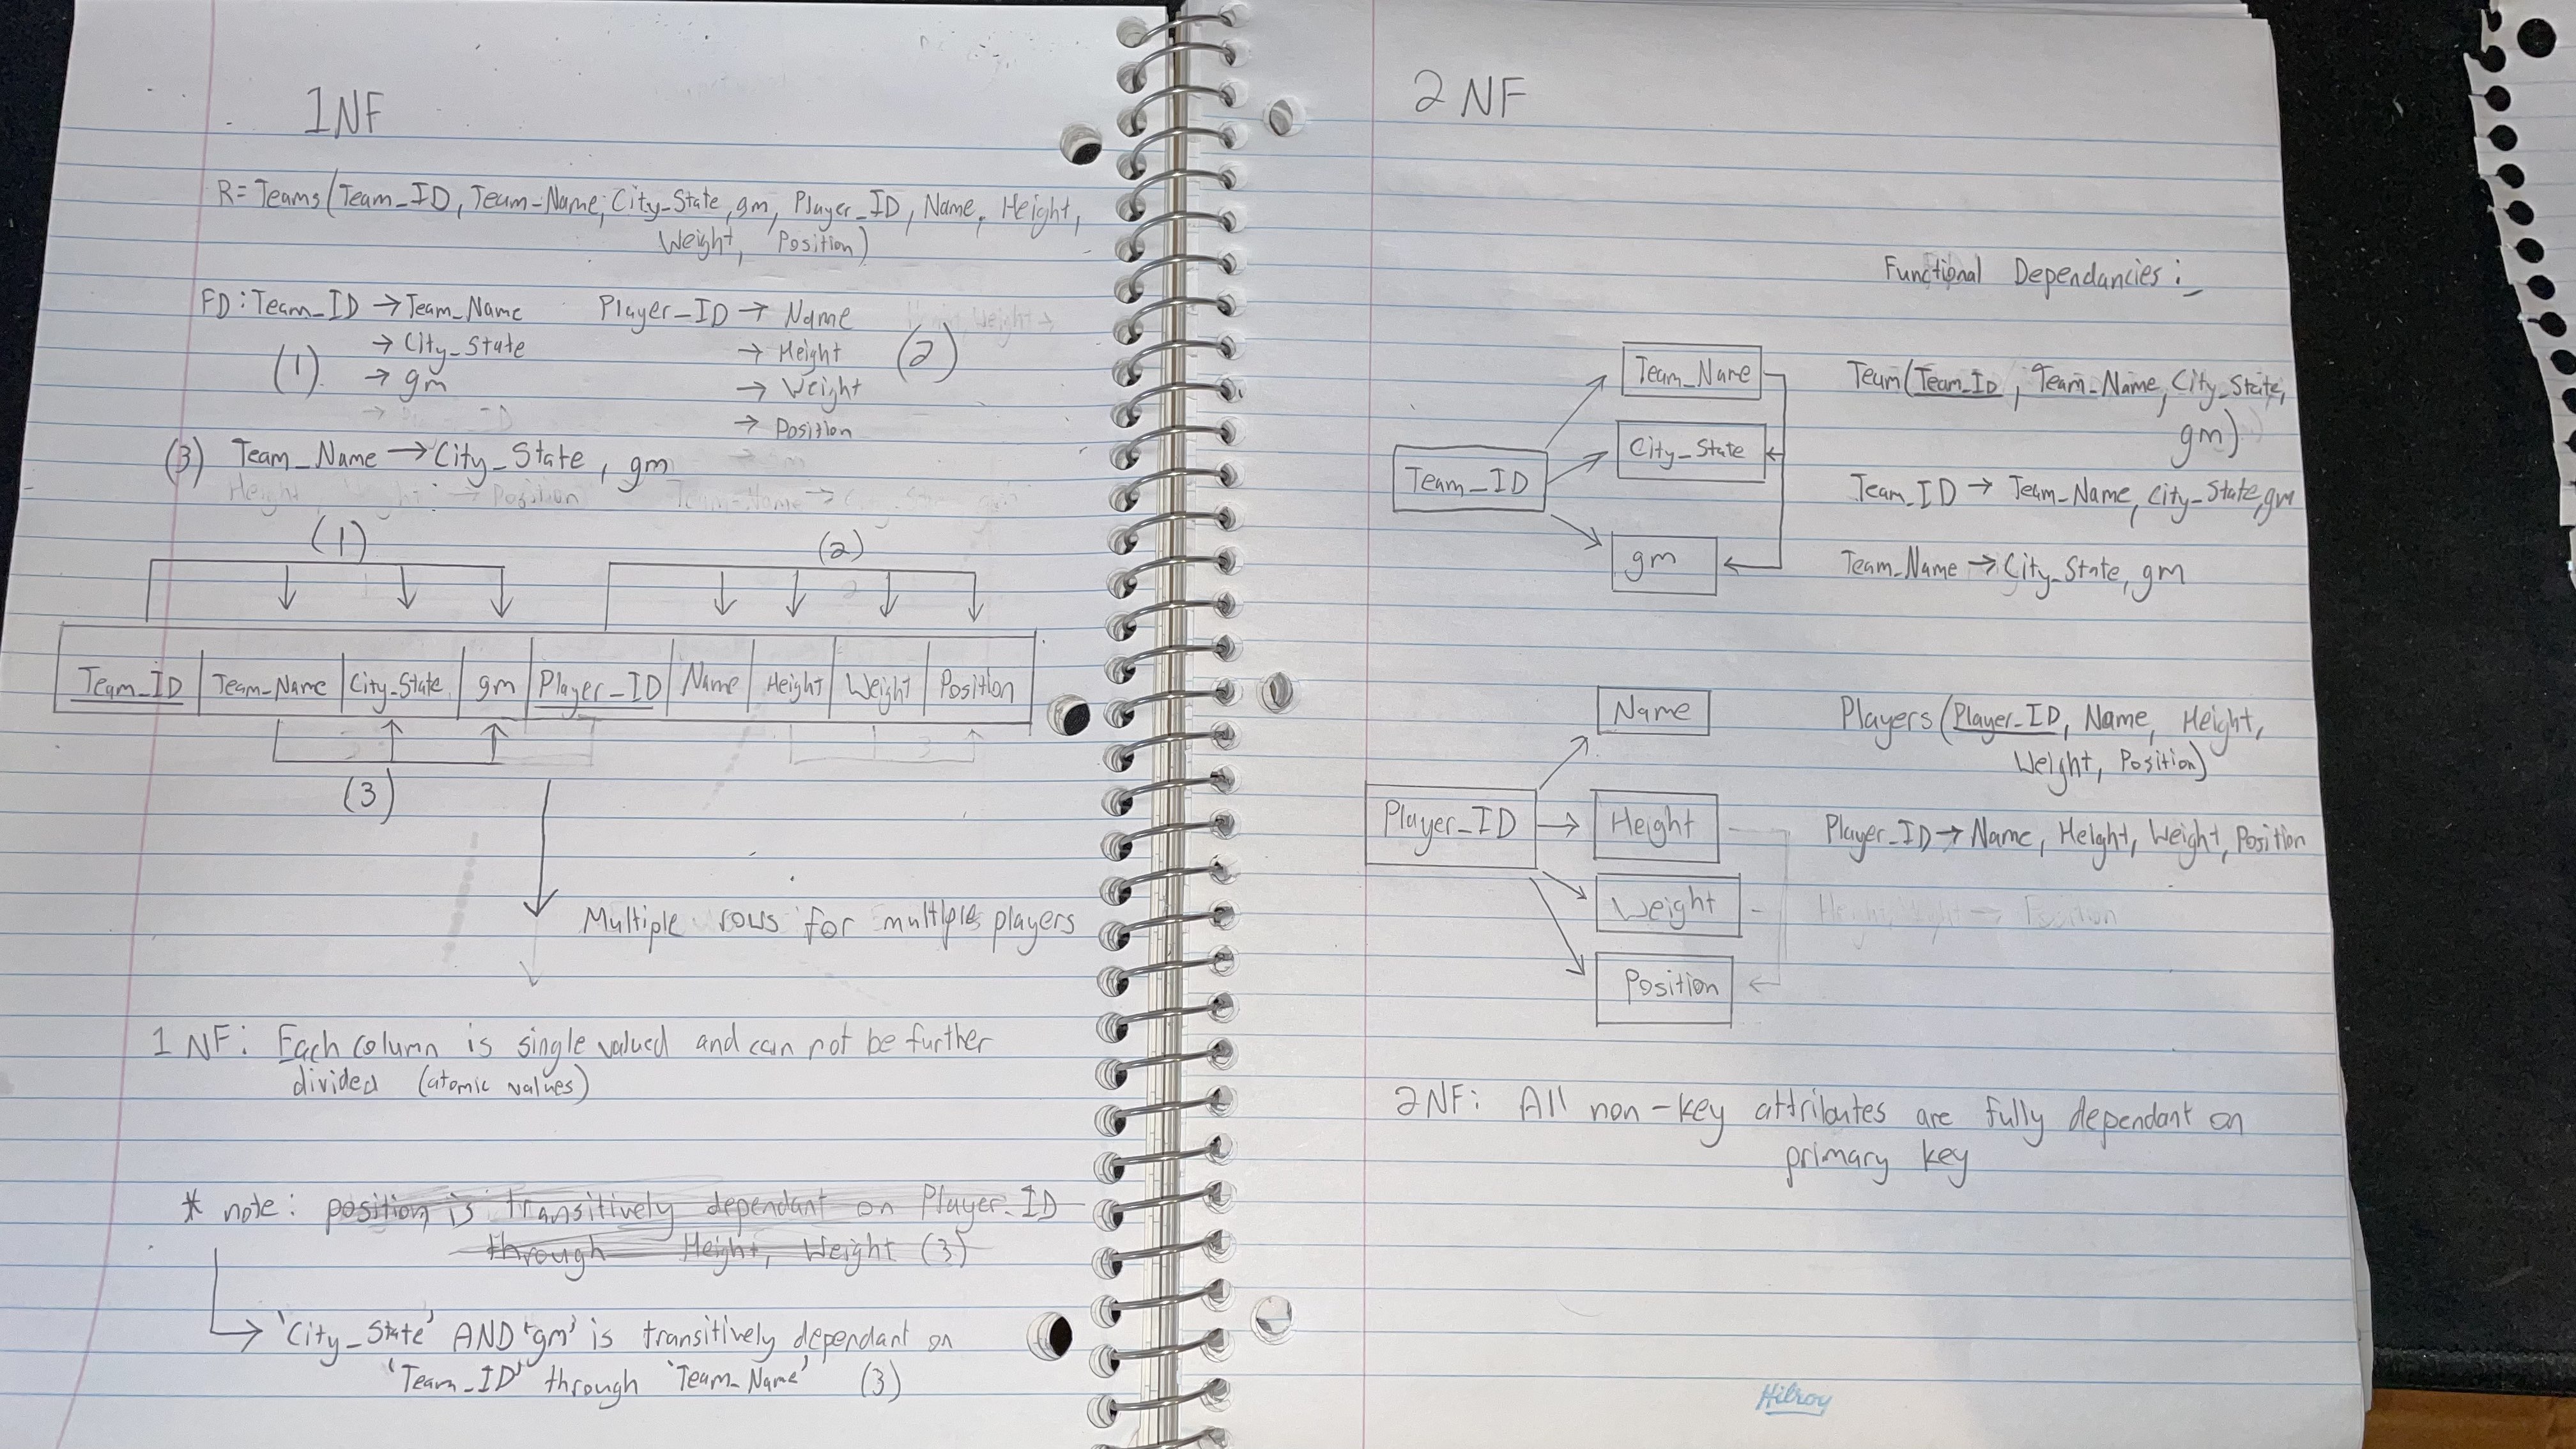 1NF
R=Teams(Team_ID, Team-Name, City-State, gm, Player_ID, Name, Height,
Weight, Position)
FD: Team_ID → Team_Name
→ City_State
(1) → gm
Player_ID → Name
→ Height (2)
→ Weight
→ Position
(3) Team_Name → City_State, gm
Height, Weight → Position
(1) (2)
Team_ID Team-Name City-State gm Player_ID Name Height Weight Position
(3)
Multiple rows for multiple players
1NF: Each column is single valued and can not be further
divided (atomic values)
* note: position is transitively dependant on Player_ID
through Height, Weight (3)
→ 'City_State' AND 'gm' is transitively dependant on
'Team_ID' through 'Team_Name' (3)
2NF
Functional Dependancies:
Team_Name
City_State
Team_ID
gm
Team(Team_ID, Team-Name, City_State,
gm)
Team_ID → Team_Name, City_State, gm
Team_Name → City_State, gm
Name
Player_ID
Height
Weight
Position
Players(Player_ID, Name, Height,
Weight, Position)
Player_ID → Name, Height, Weight, Position
Height, Weight → Position
2NF: All non-key attributes are fully dependant on
primary key
Hilroy